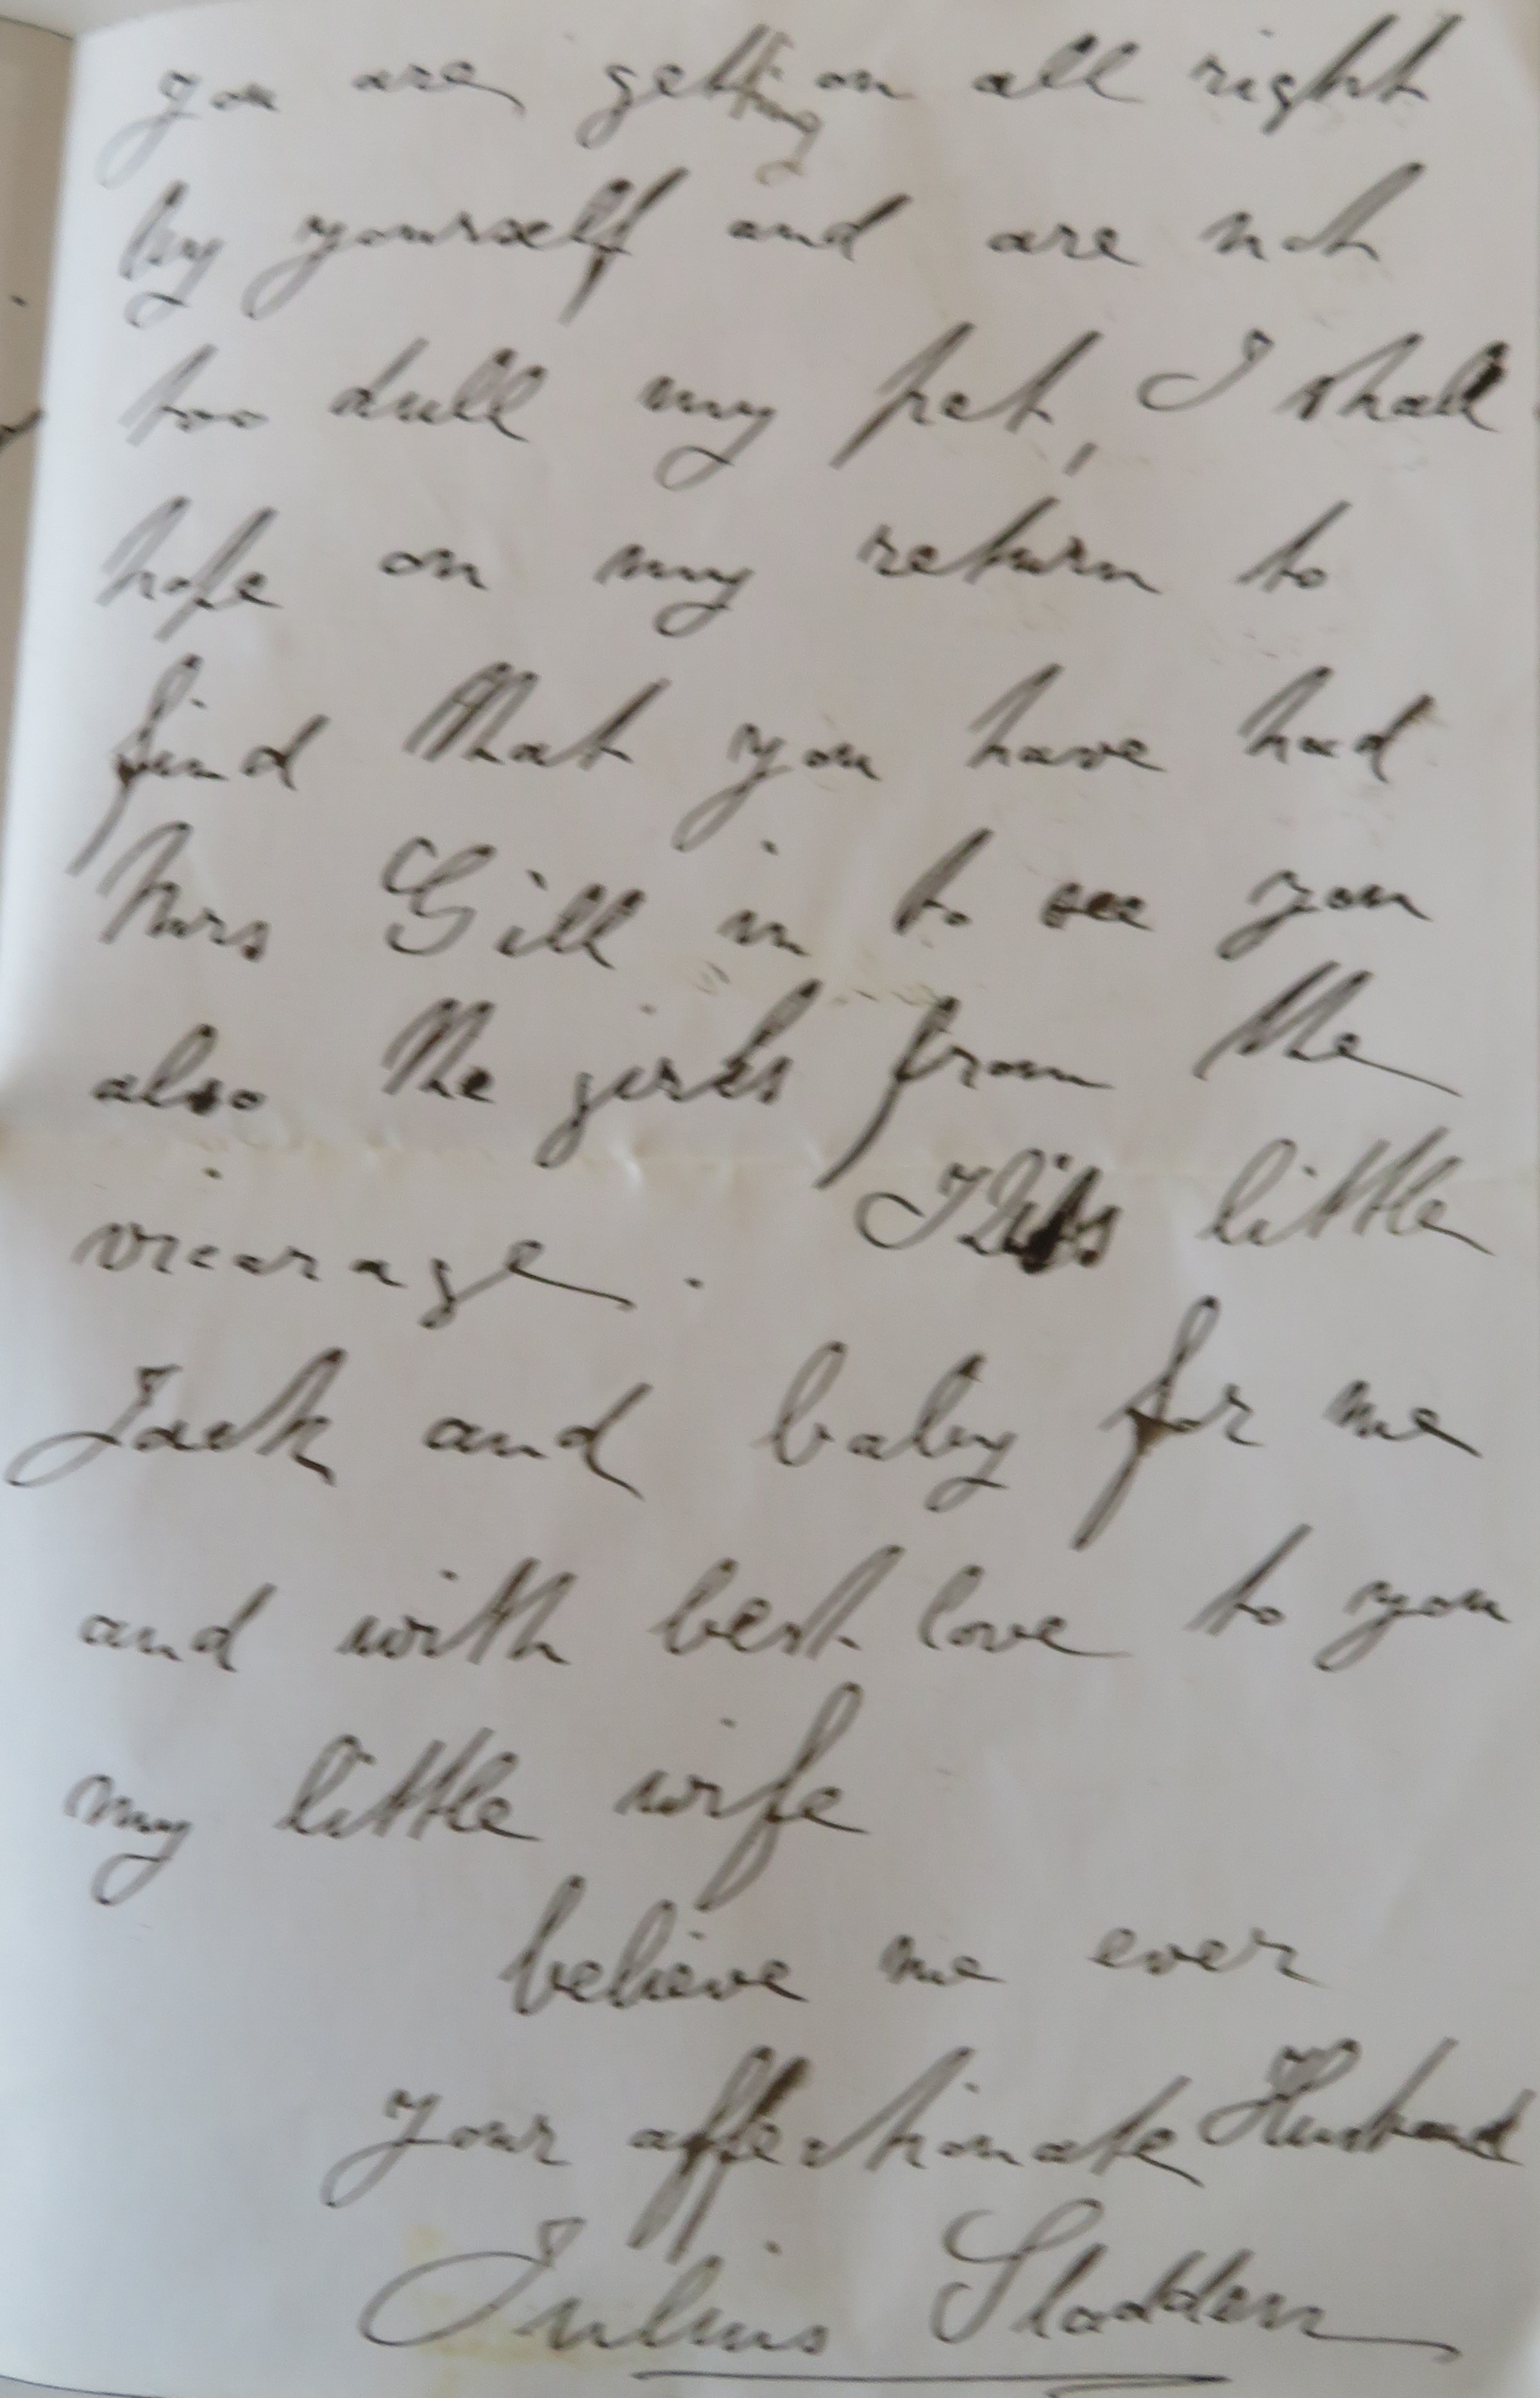 you are getting on all right
by yourself and are not
too dull my pet, I shall
hope on my return to
find that you have had
Mrs Gill in to see you
also the girls from the
vicarage. Kiss little
Jack and baby for me
and with best love to you
my little wife
believe me ever
Your affectionate Husband
Julius Sladden